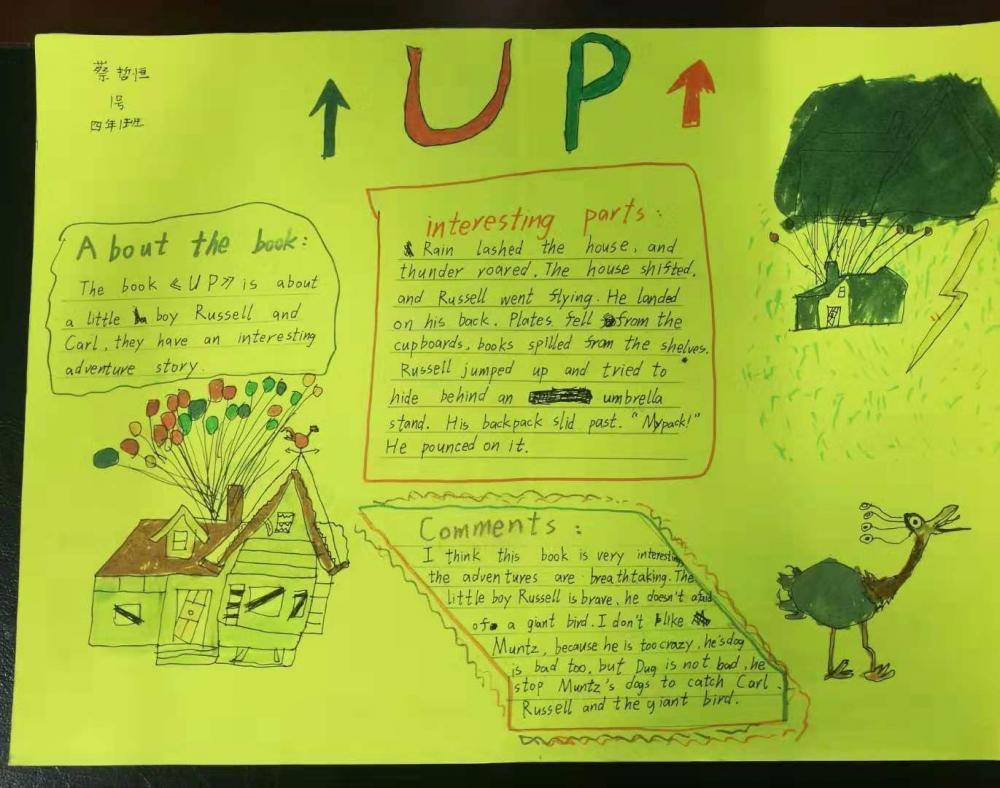 蔡哲恒
1号
四年1班
UP
About the book:
The book 《UP》 is about
a little boy Russell and
Carl, they have an interesting
adventure story.
interesting parts:
Rain lashed the house, and
thunder roared. The house shifted,
and Russell went flying. He landed
on his back. Plates fell from the
cupboards, books spilled from the shelves.
Russell jumped up and tried to
hide behind an umbrella
stand. His backpack slid past. "Mypack!"
He pounced on it.
Comments:
I think this book is very interesting
the adventures are breathtaking. The
little boy Russell is brave, he doesn't afraid
of a giant bird. I don't like
Muntz, because he is too crazy, he's dog
is bad too, but Dug is not bad, he
stop Muntz's dogs to catch Carl,
Russell and the giant bird.